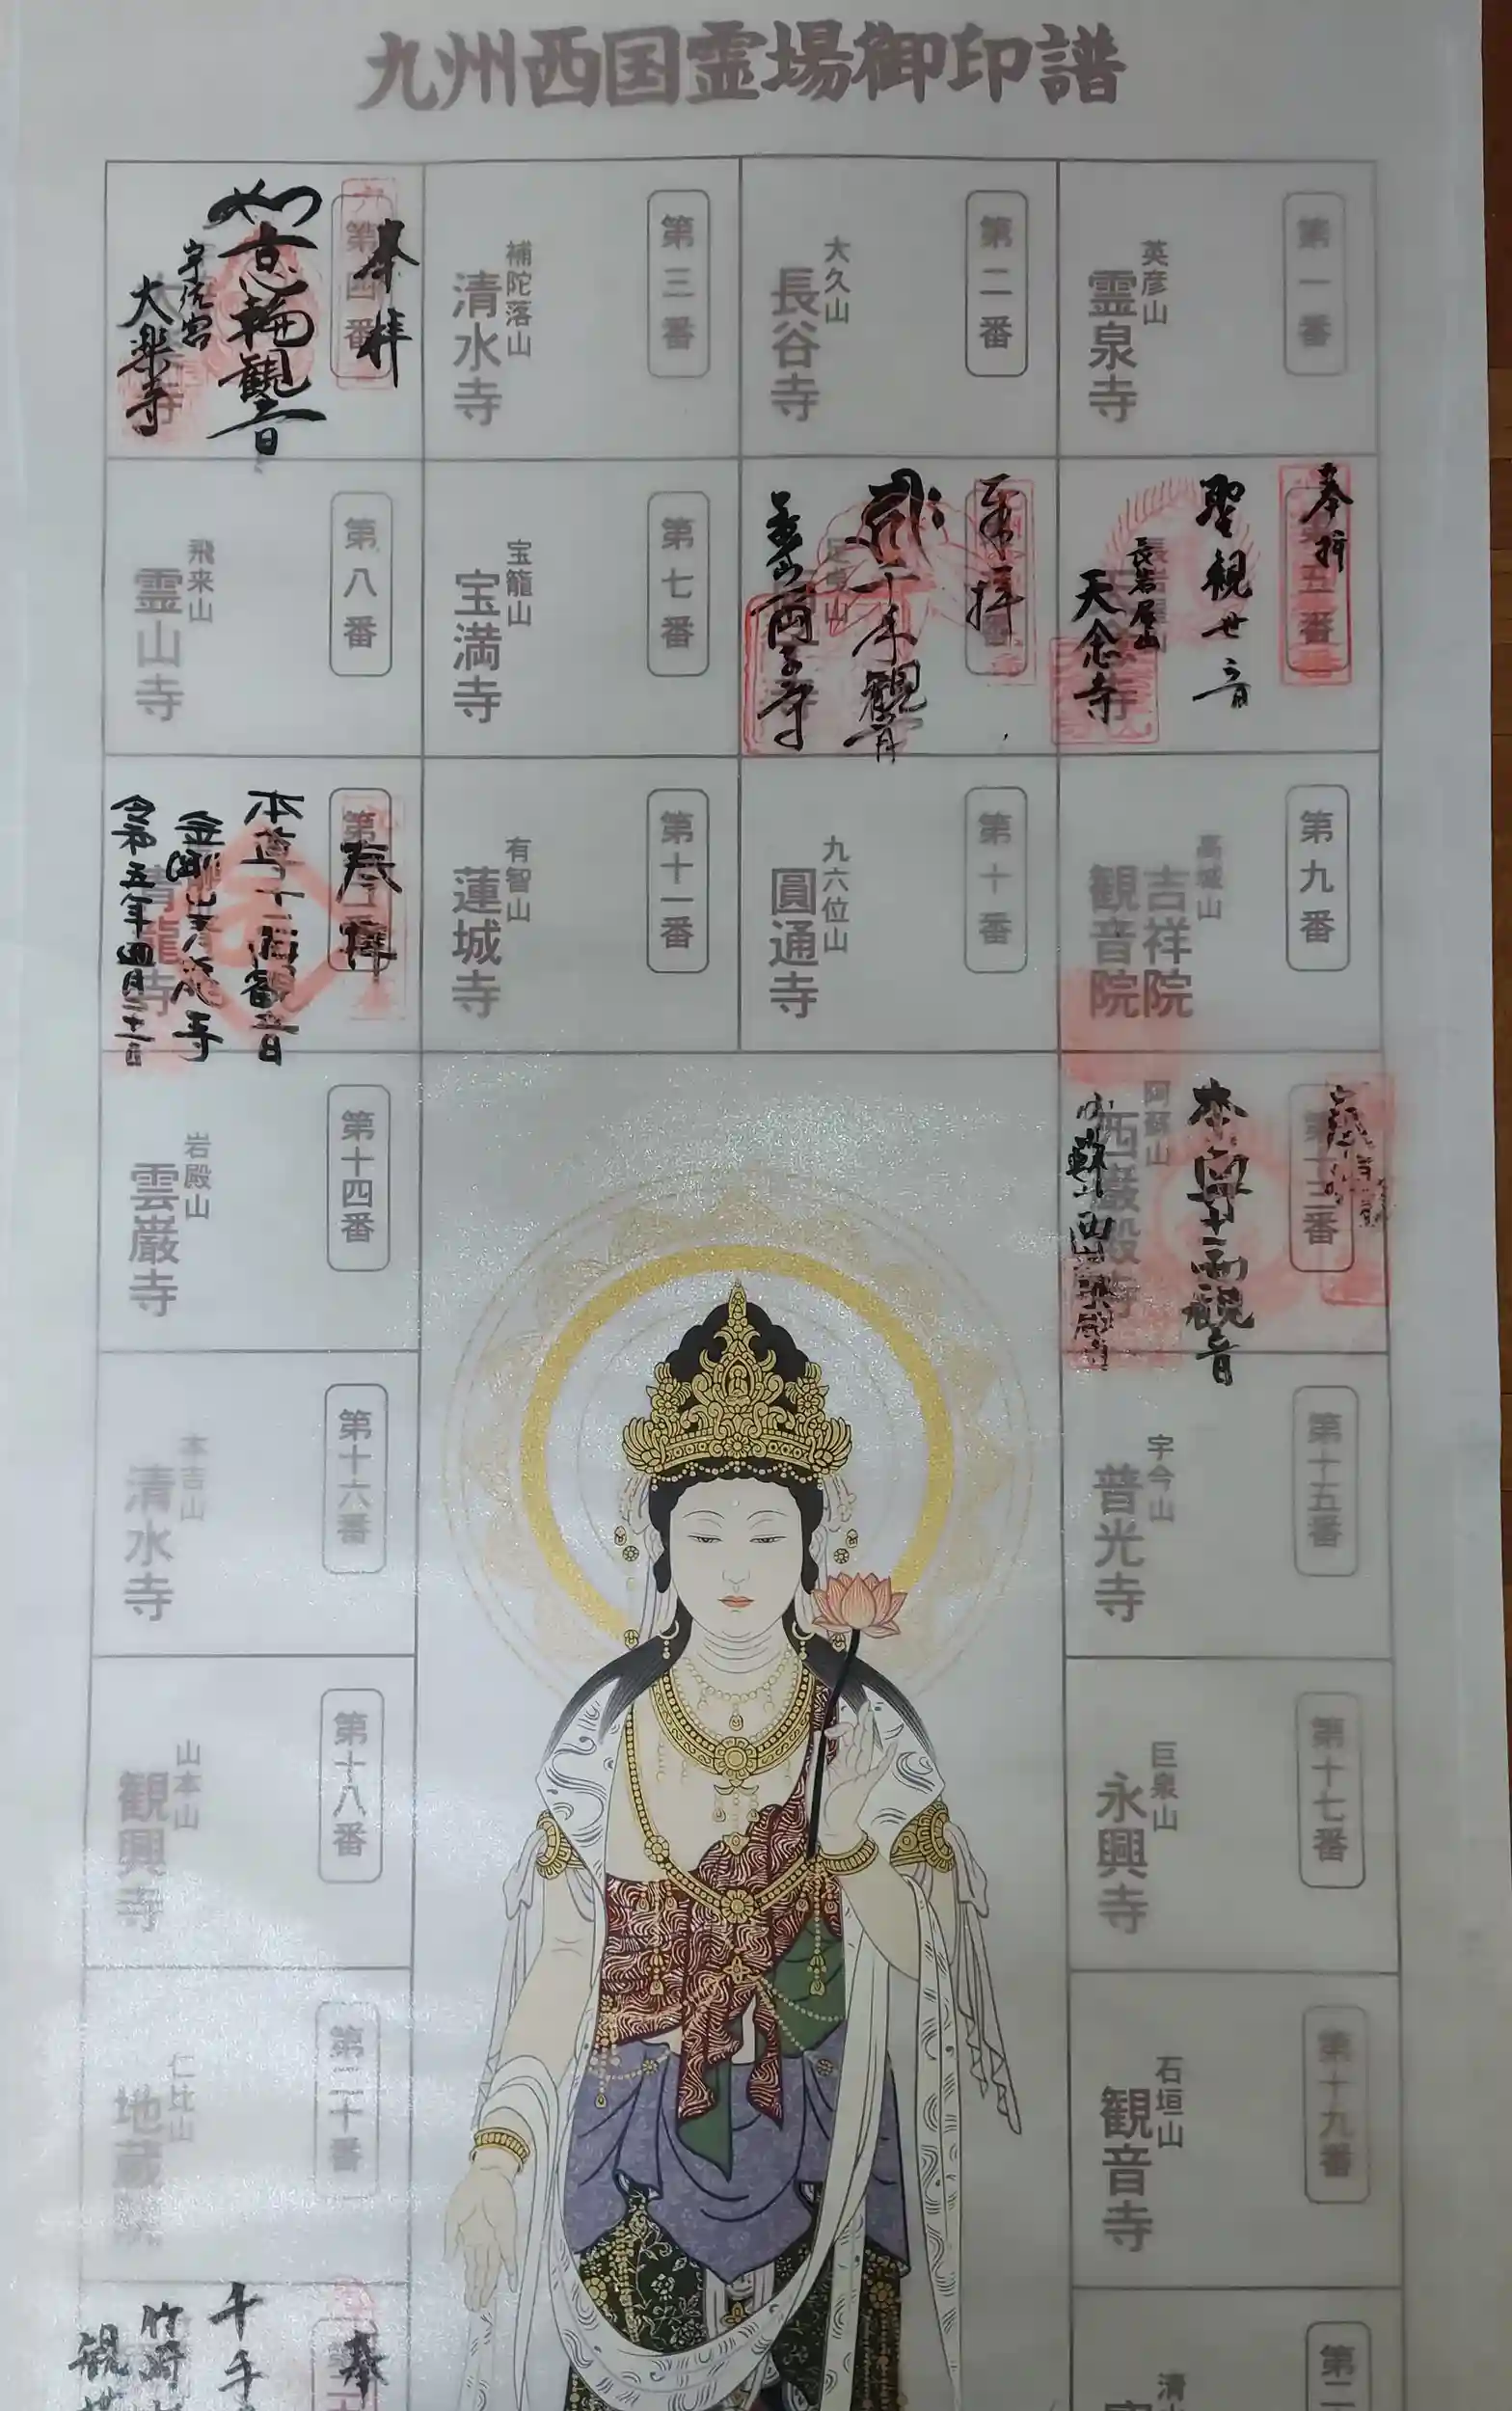 九州西国霊場御印譜
第一番
英彦山
霊泉寺
第二番
大久山
長谷寺
第三番
補陀落山
清水寺
第四番
奉拝
如意輪観音
宇佐宮
大楽寺
奉拝
第五番
聖観世音
長岩屋山
天念寺
奉拝
千手観音
両子寺
第七番
宝籠山
宝満寺
第八番
飛来山
霊山寺
第九番
高城山
吉祥院
観音院
第十番
九六位山
圓通寺
第十一番
有智山
蓮城寺
奉拝
本尊十一面観音
金剛山青龍寺
令和五年四月二十一日
青龍寺
第十三番
本尊十一面観音
阿蘇山
西巌殿寺
第十四番
岩殿山
雲巌寺
第十五番
宇今山
普光寺
第十六番
本吉山
清水寺
第十七番
巨泉山
永興寺
第十八番
山本山
観興寺
第十九番
石垣山
観音寺
第二十番
仁比山
地蔵院
奉
千手
竹崎
観
第二
清